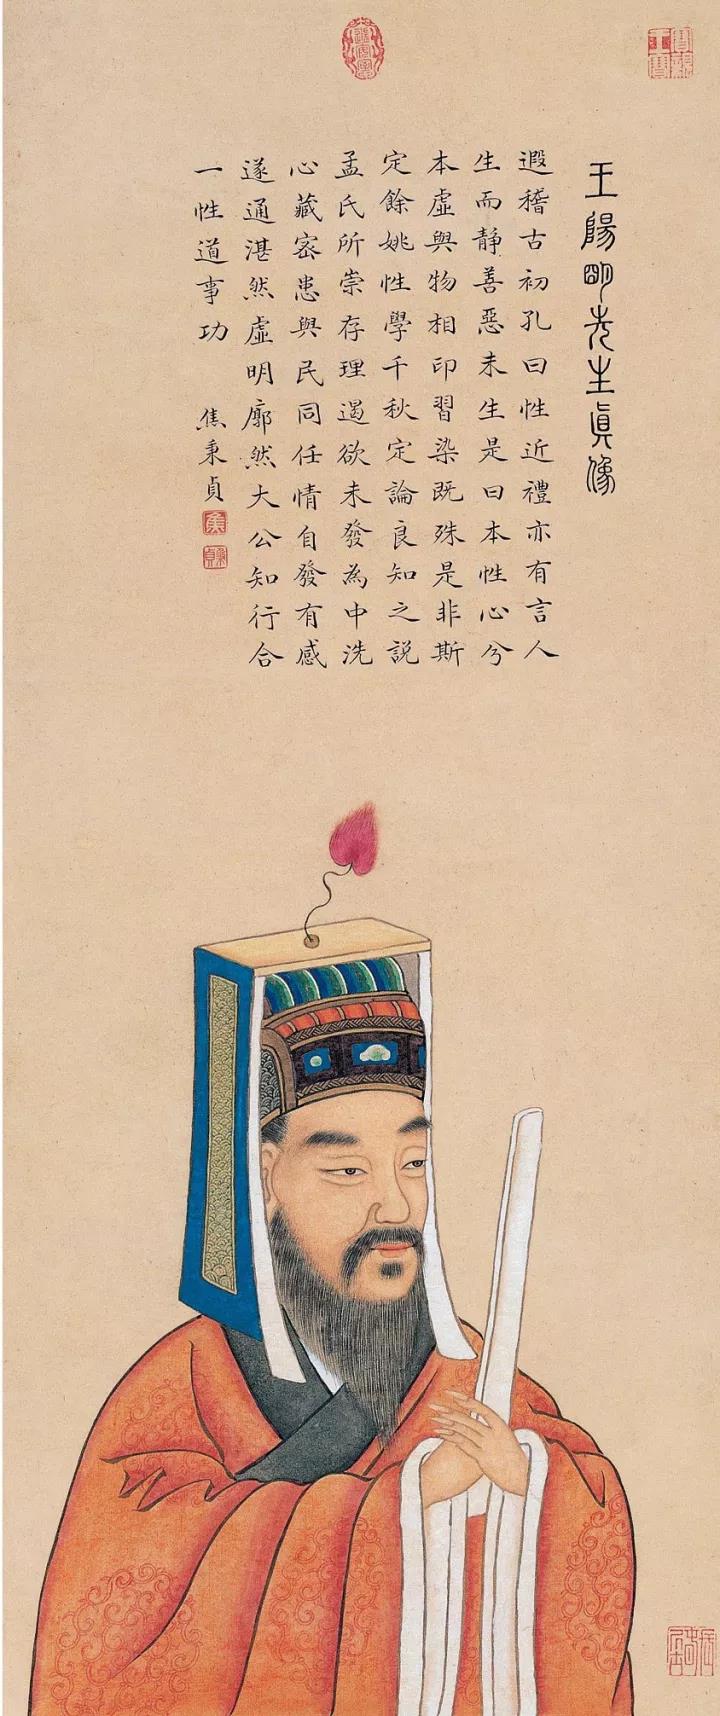 王陽明先生眞像
遐稽古初孔曰性近禮亦有言人
生而靜善惡未生是曰本性心兮
本虛與物相印習染既殊是非斯
定餘姚性學千秋定論良知之説
孟氏所崇存理遏欲未發為中洗
心藏密患與民同任情自發有感
遂通湛然虛明廓然大公知行合
一性道事功
焦秉貞
焦
秉貞